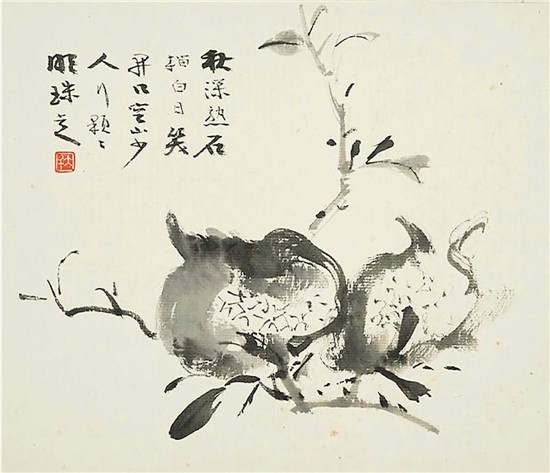 秋深熟石
榴白日笑
开口空山少
人行颗々
明珠走